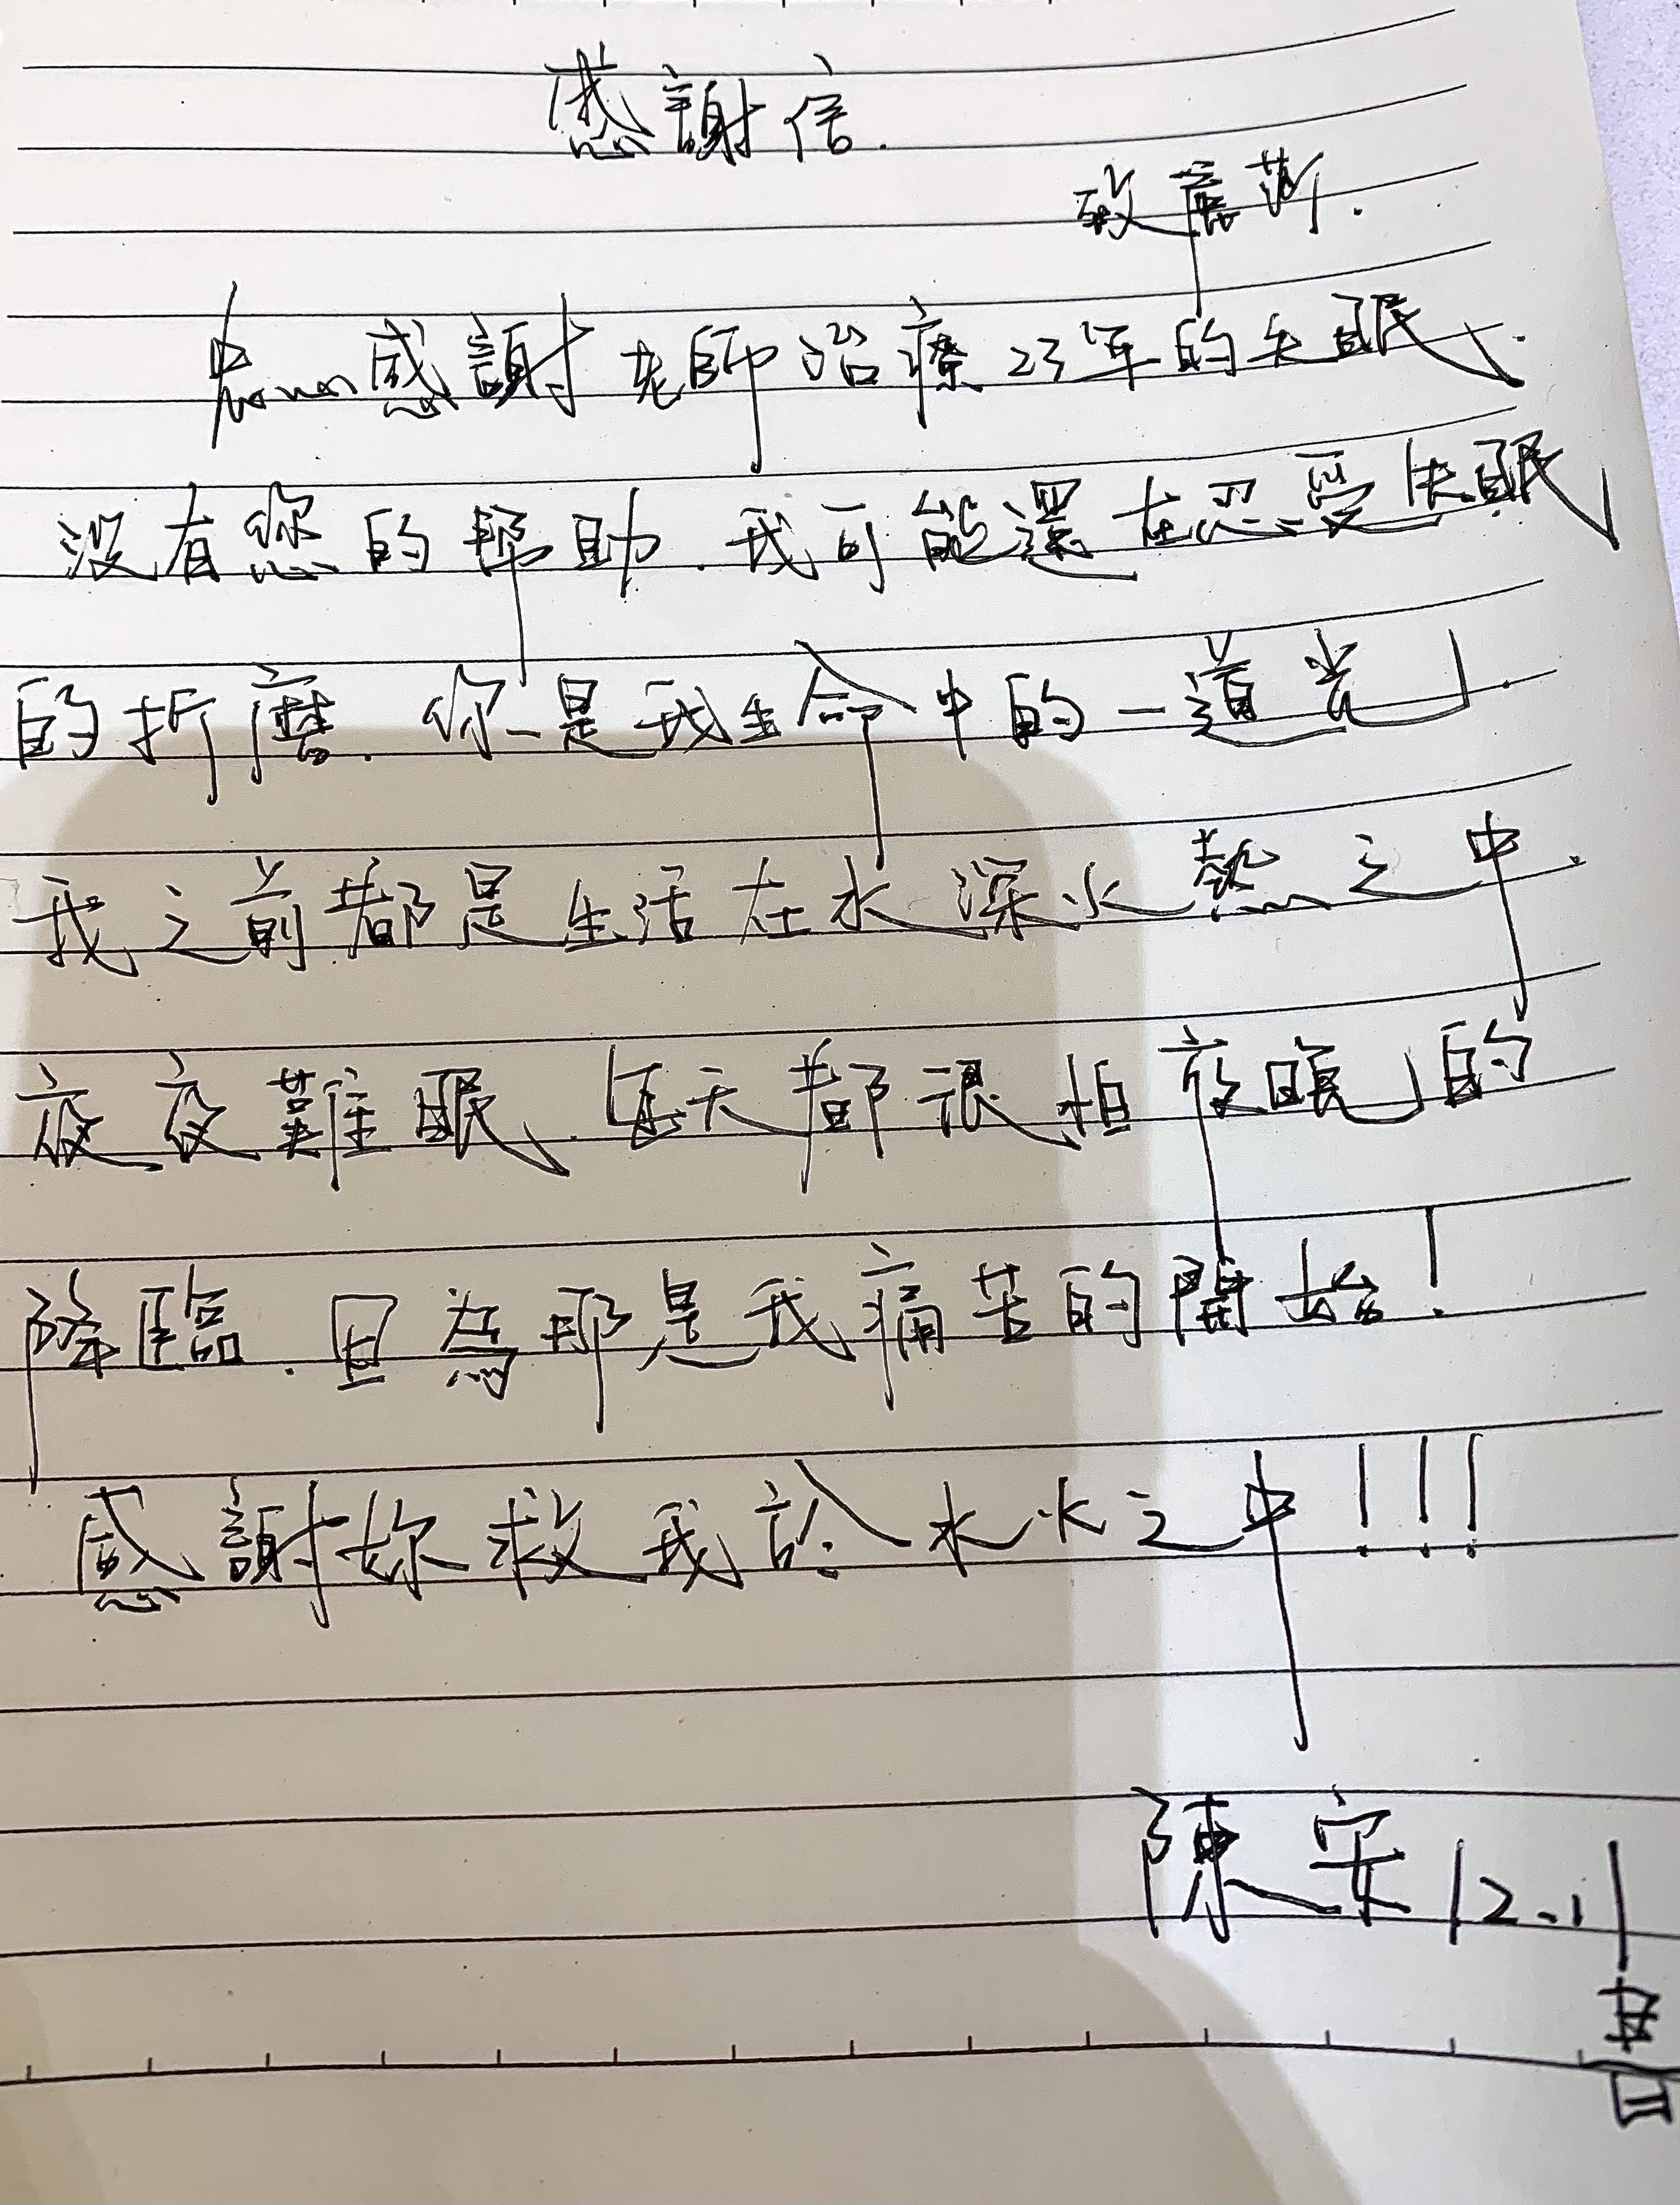 感謝信.
致
感謝老師治療23年的失眠.
沒有您的幫助.我可能還在忍受失眠
的折磨.你是我生命中的一道光.
我之前都是生活在水深火熱之中.
夜夜難眠.每天都很怕夜晚的
降臨.因為那是我痛苦的開始!
感謝妳救我於水火之中!!!
陳安 12.11